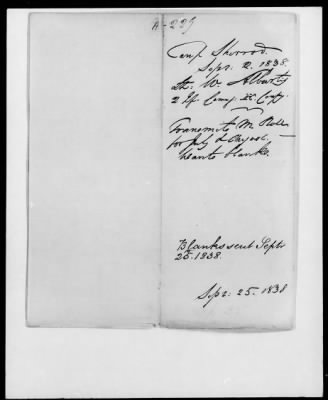 A-229
Camp Sherrod.
Sept. 2. 1838.
W.
2
Transmits M Rolls
for July & August. —
Wants blanks.
Blanks sent Sept.
25. 1838.
Sept. 25. 1838